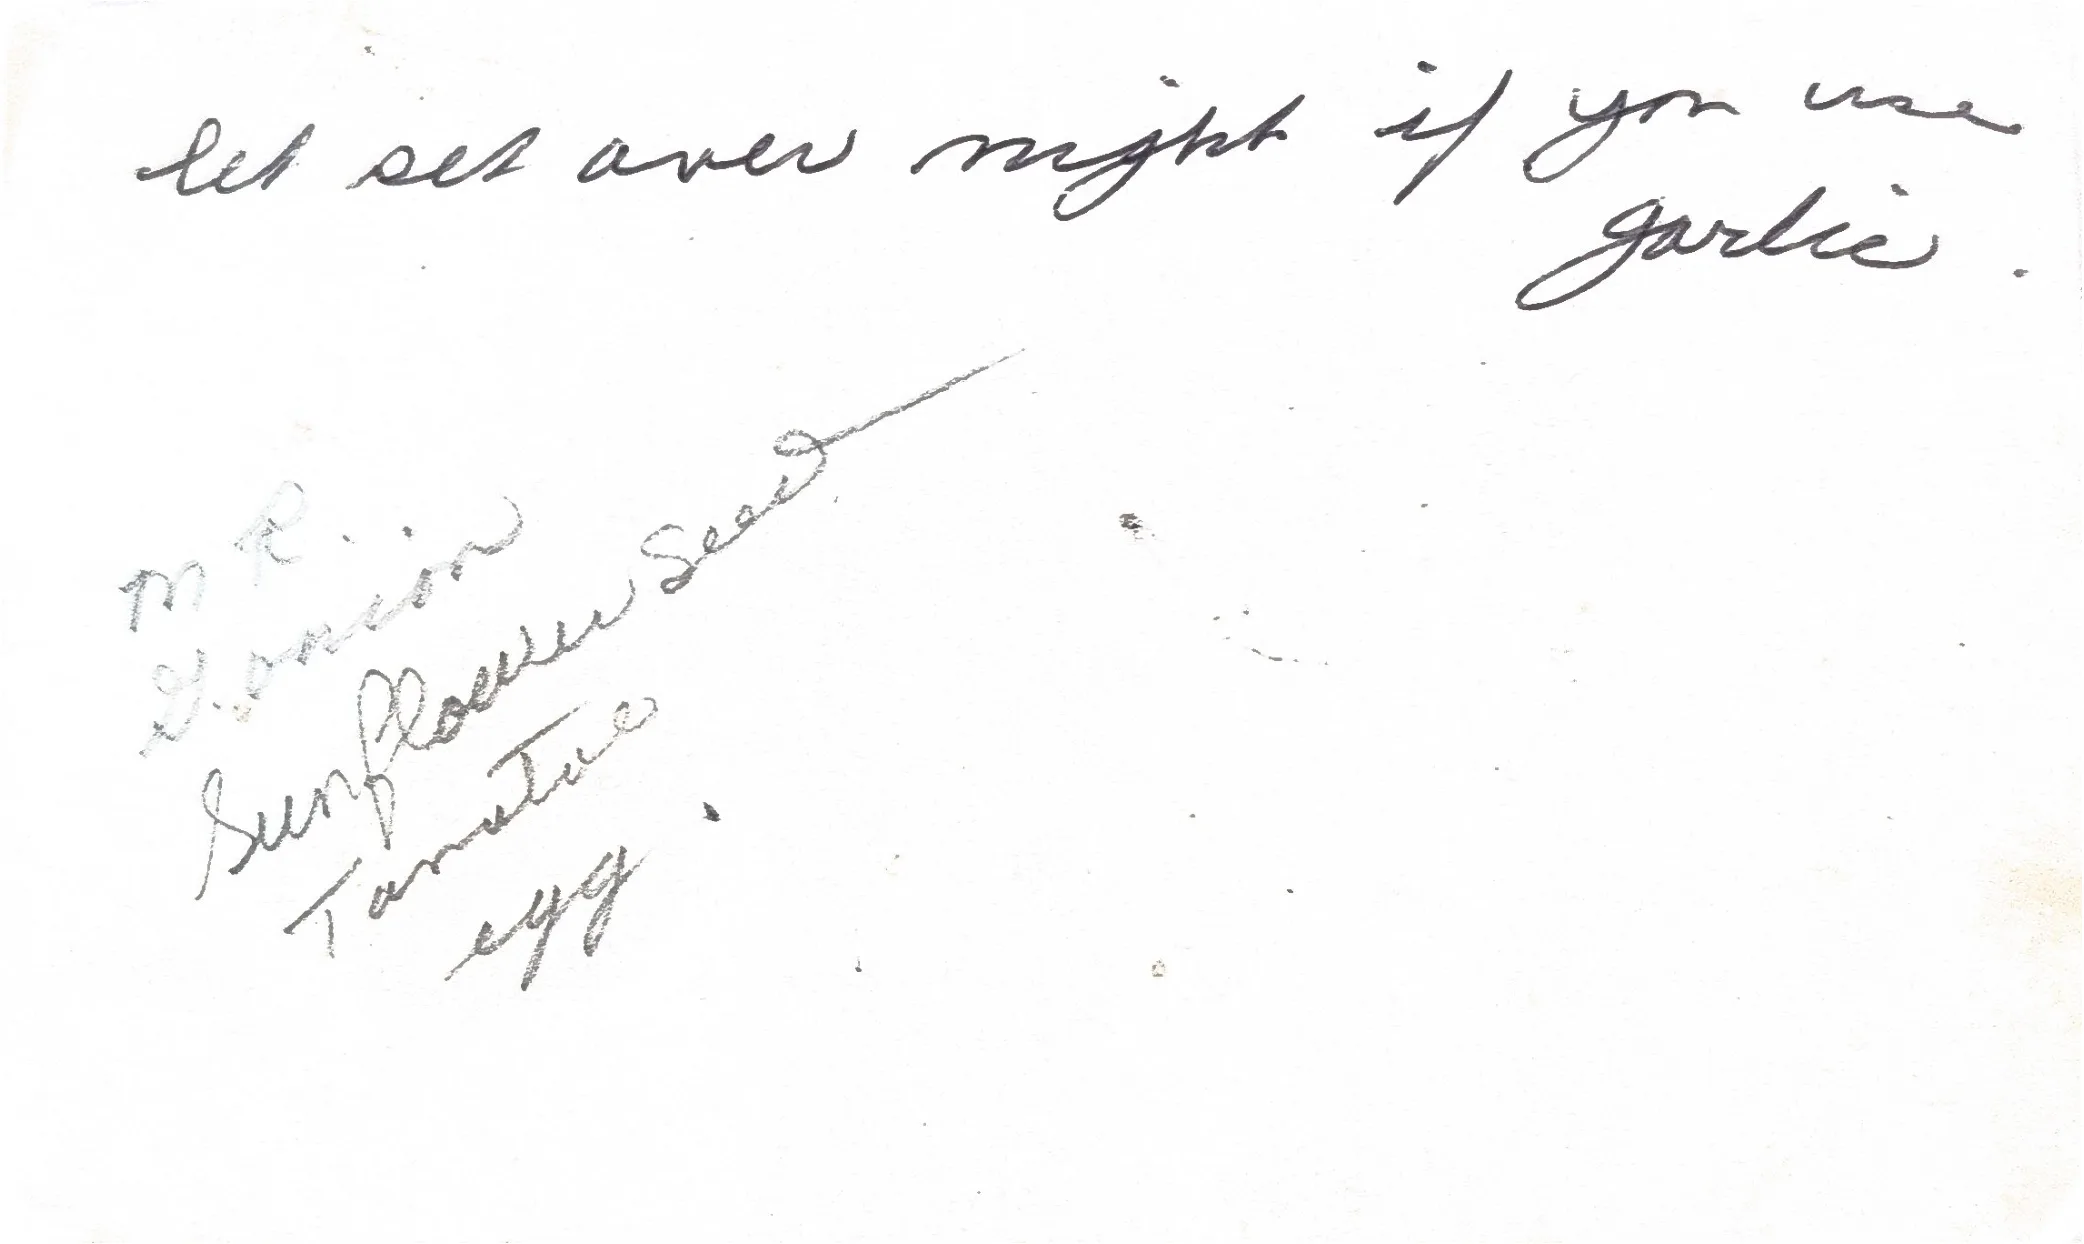 let set over night if you use
garlic.
M R..
G. onion
Sunflower Seed
Tamatoe
egg